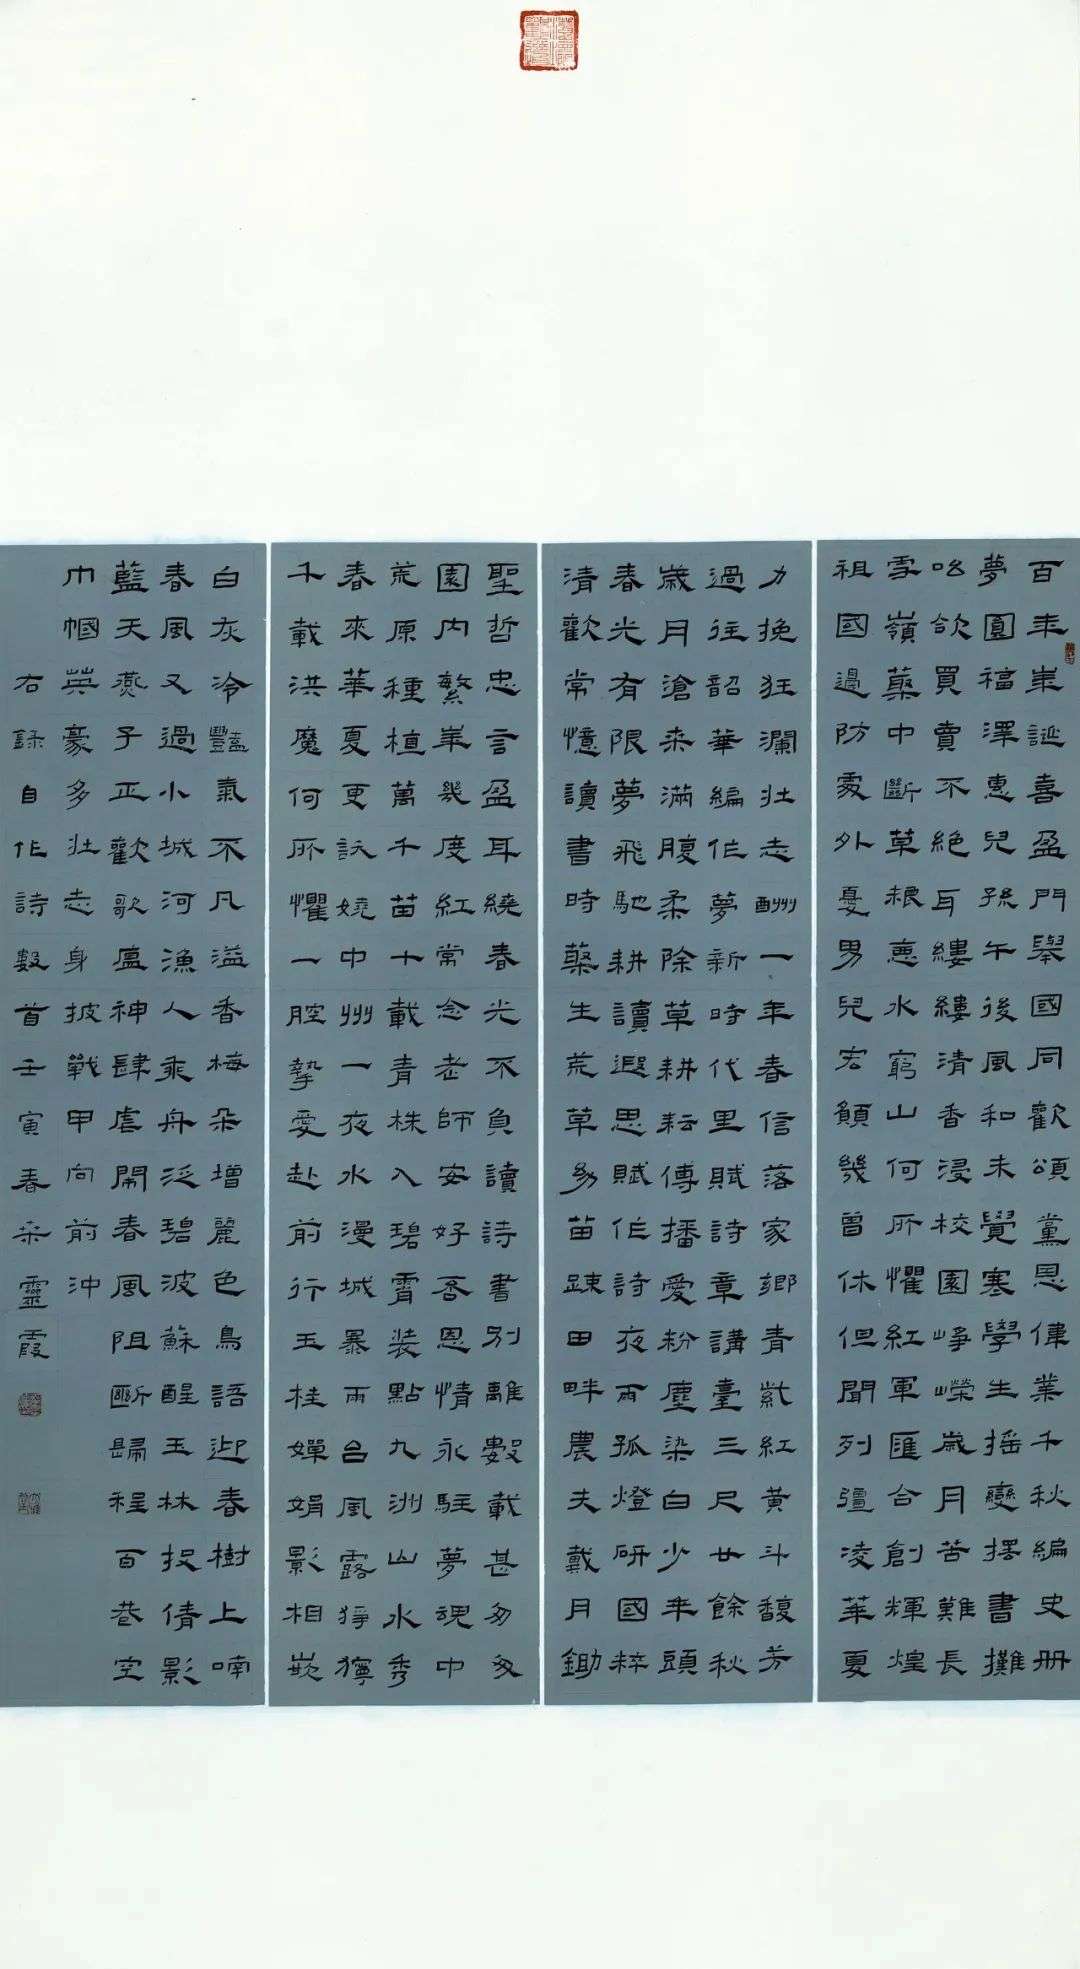 百年華誕喜盈門舉國同歡頌黨恩偉業千秋編史冊
夢圓福澤惠兒孫午後風和未覺寒學生搖變擺書攤
吆欲買賣不絕耳縷縷清香浸校園崢嶸歲月苦難長
雪嶺藥中斷草根憲水窮山何所懼紅軍匯合創輝煌
祖國邊防憂外憂男兒宏願幾曾休但聞列彊凌華夏
力挽狂瀾壯志酬一年春信落家鄉青紫紅黃斗馥芳
過往韶華編作夢新時代里賦詩章講臺三尺廿餘秋
歲月滄桑滿腹柔除草耕耘傳播愛粉塵染白少年頭
春光有限夢飛馳耕讀遐思賦作詩夜雨孤燈研國粹
清歡常憶讀書時藥生荒草幼苗疎田畔農夫戴月鋤
聖哲忠言盈耳繞春光不負讀詩書別離數載甚匆匆
園內繁華幾度紅常念老師安好否恩情永駐夢魂中
荒原種植萬千苗十載青株入碧霄裝點九洲山水秀
春來華夏更妖嬈中州一夜水漫城暴雨台風露猙獰
千載洪魔何所懼一腔摯愛赴前行玉桂嬋娟影相嵌
白灰冷豔氣不凡溢香梅朵增麗色鳥語迎春樹上喃
春風又過小城河漁人乘舟泛碧波蘇醒玉林投倩影
藍天燕子正歡歌瘟神肆虐鬧春風阻斷歸程百巷空
巾幗英豪多壯志身披戰甲向前沖
右錄自作詩數首壬寅春朵靈霞